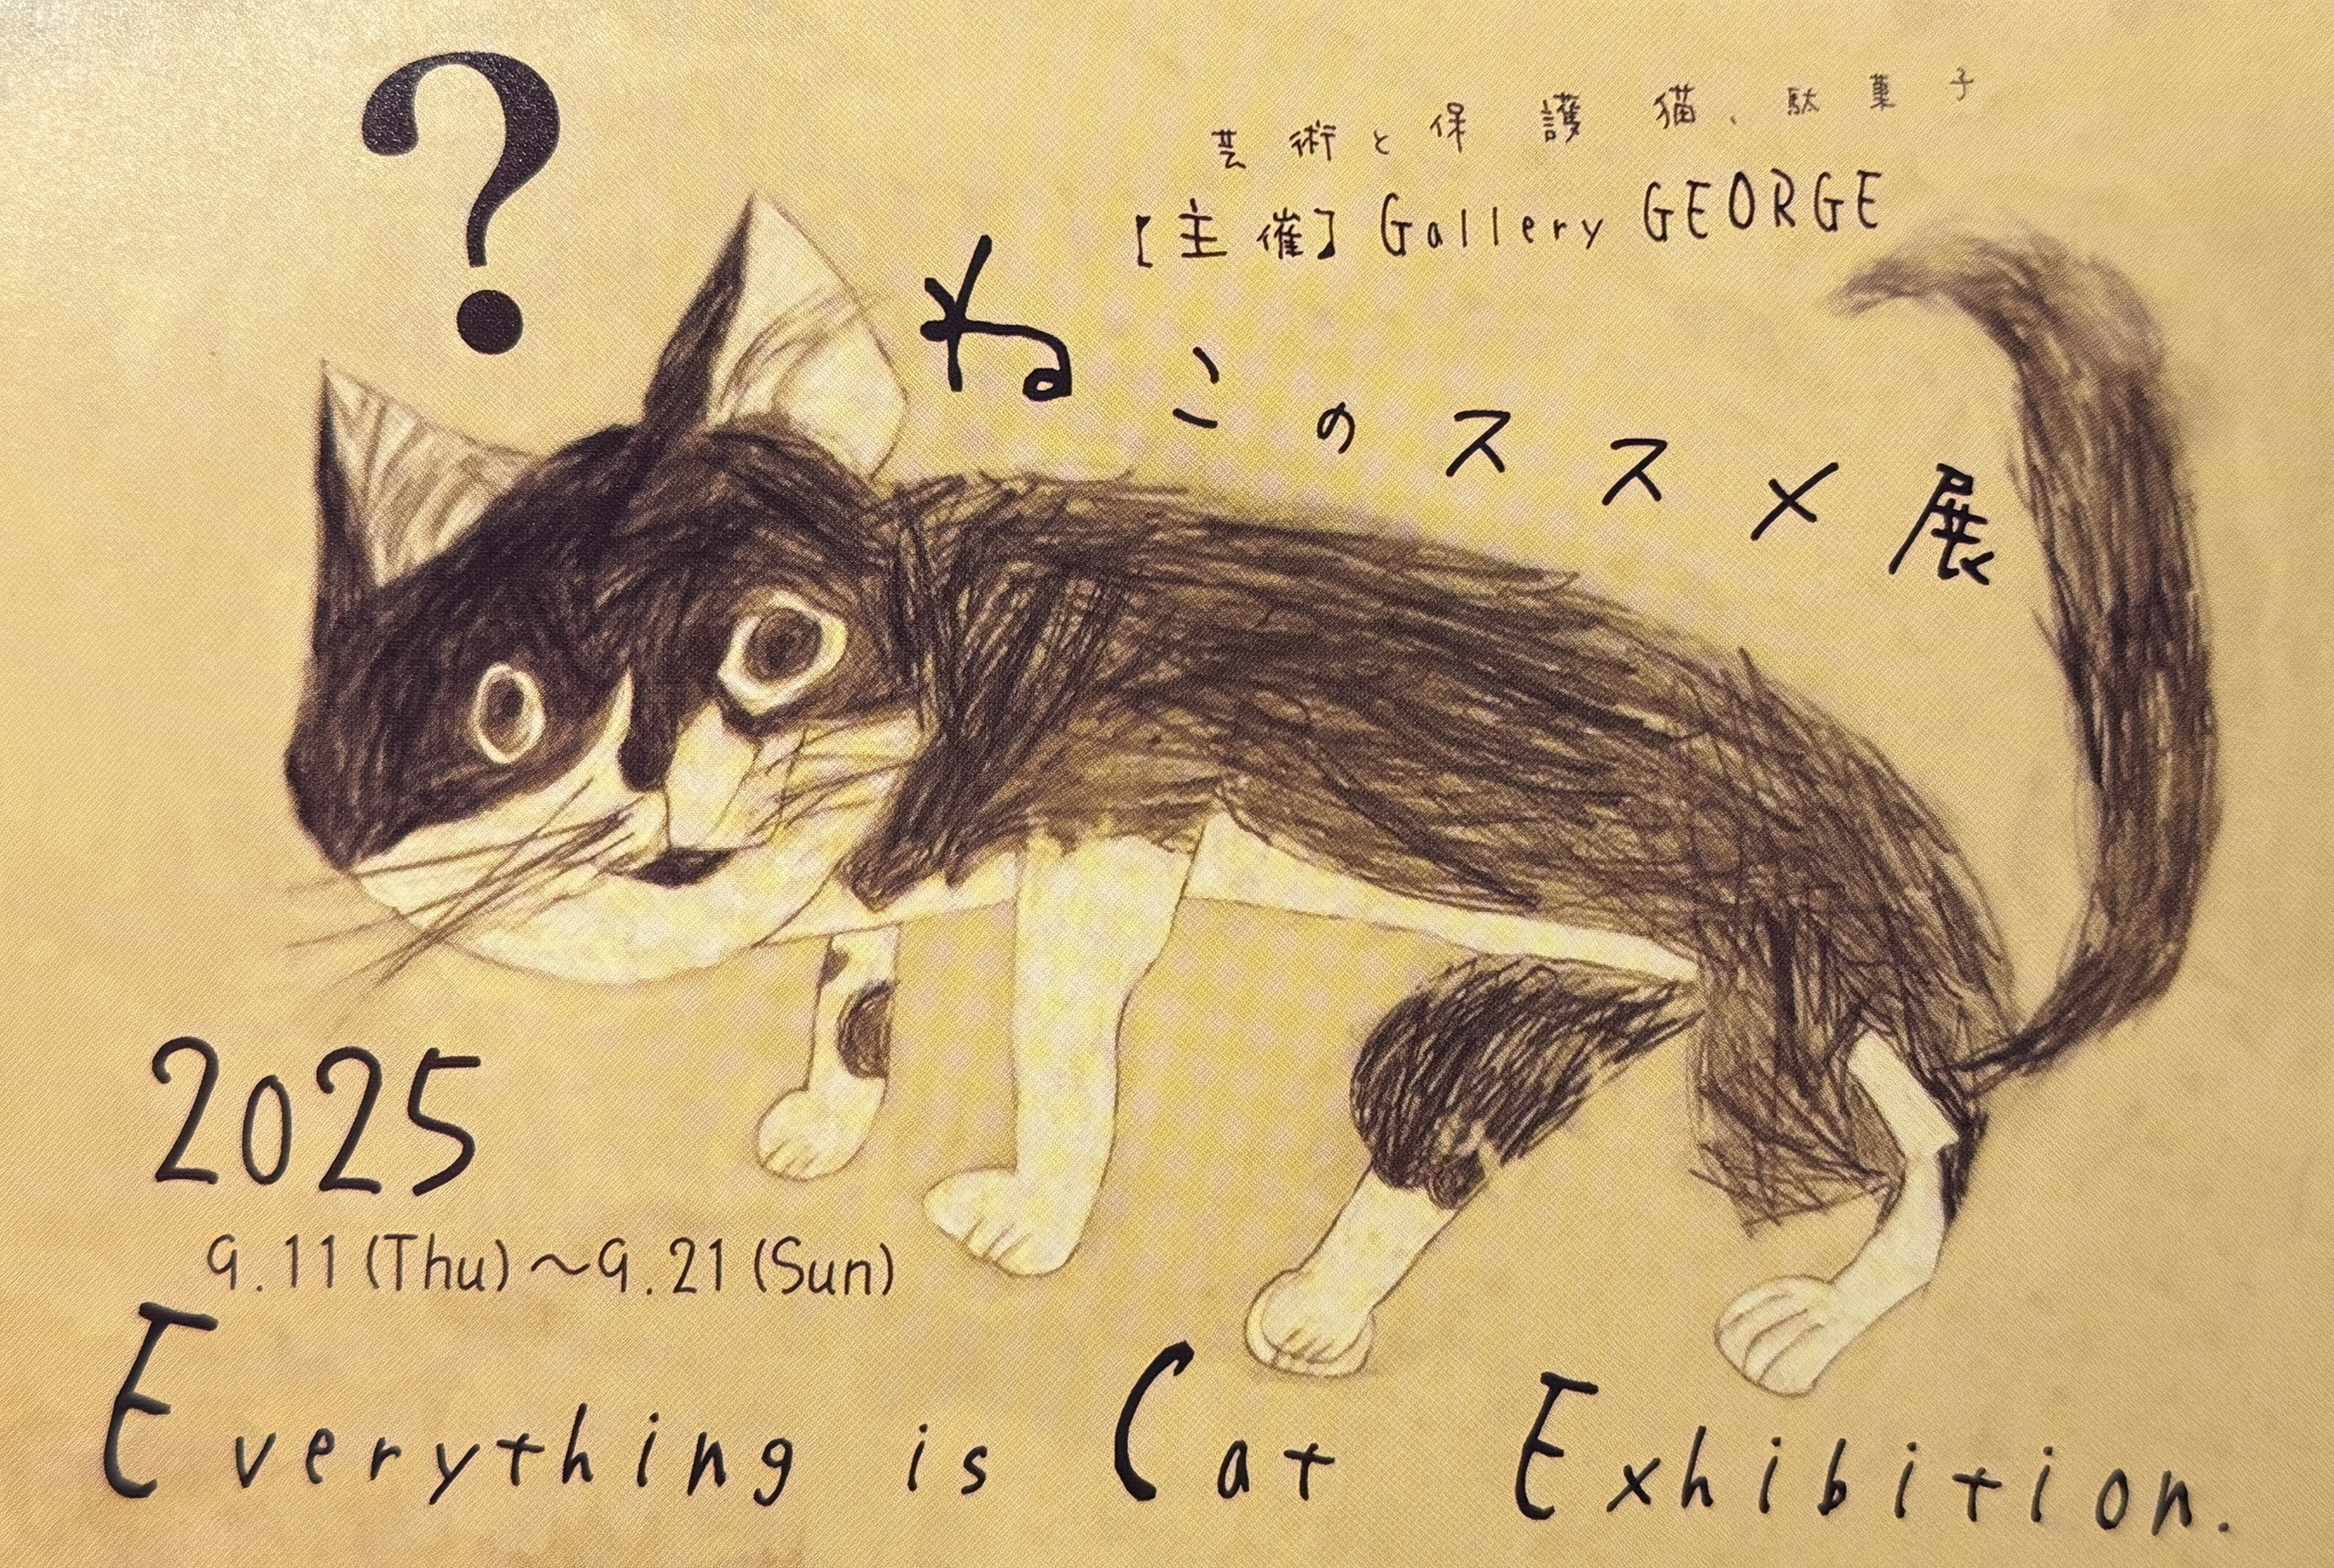 ?
芸術と保護猫、駄菓子
【主催】Gallery GEORGE
ねこのススメ展
2025
9.11(Thu)〜9.21(Sun)
Everything is Cat Exhibition.